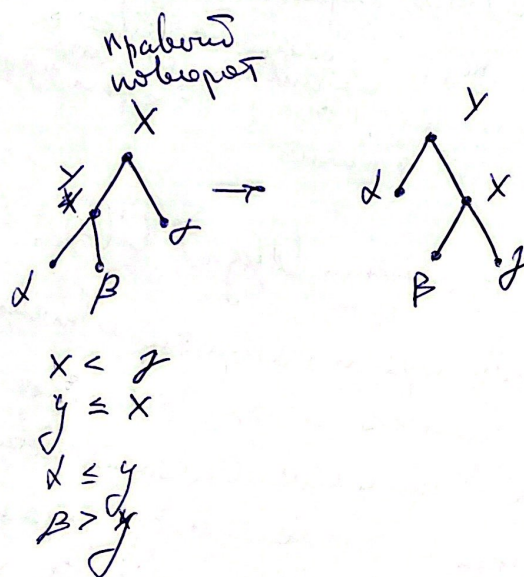 правый
поворот
X
y
α β γ
→
y
α X
β γ
x < γ
y ≤ x
α ≤ y
β > y